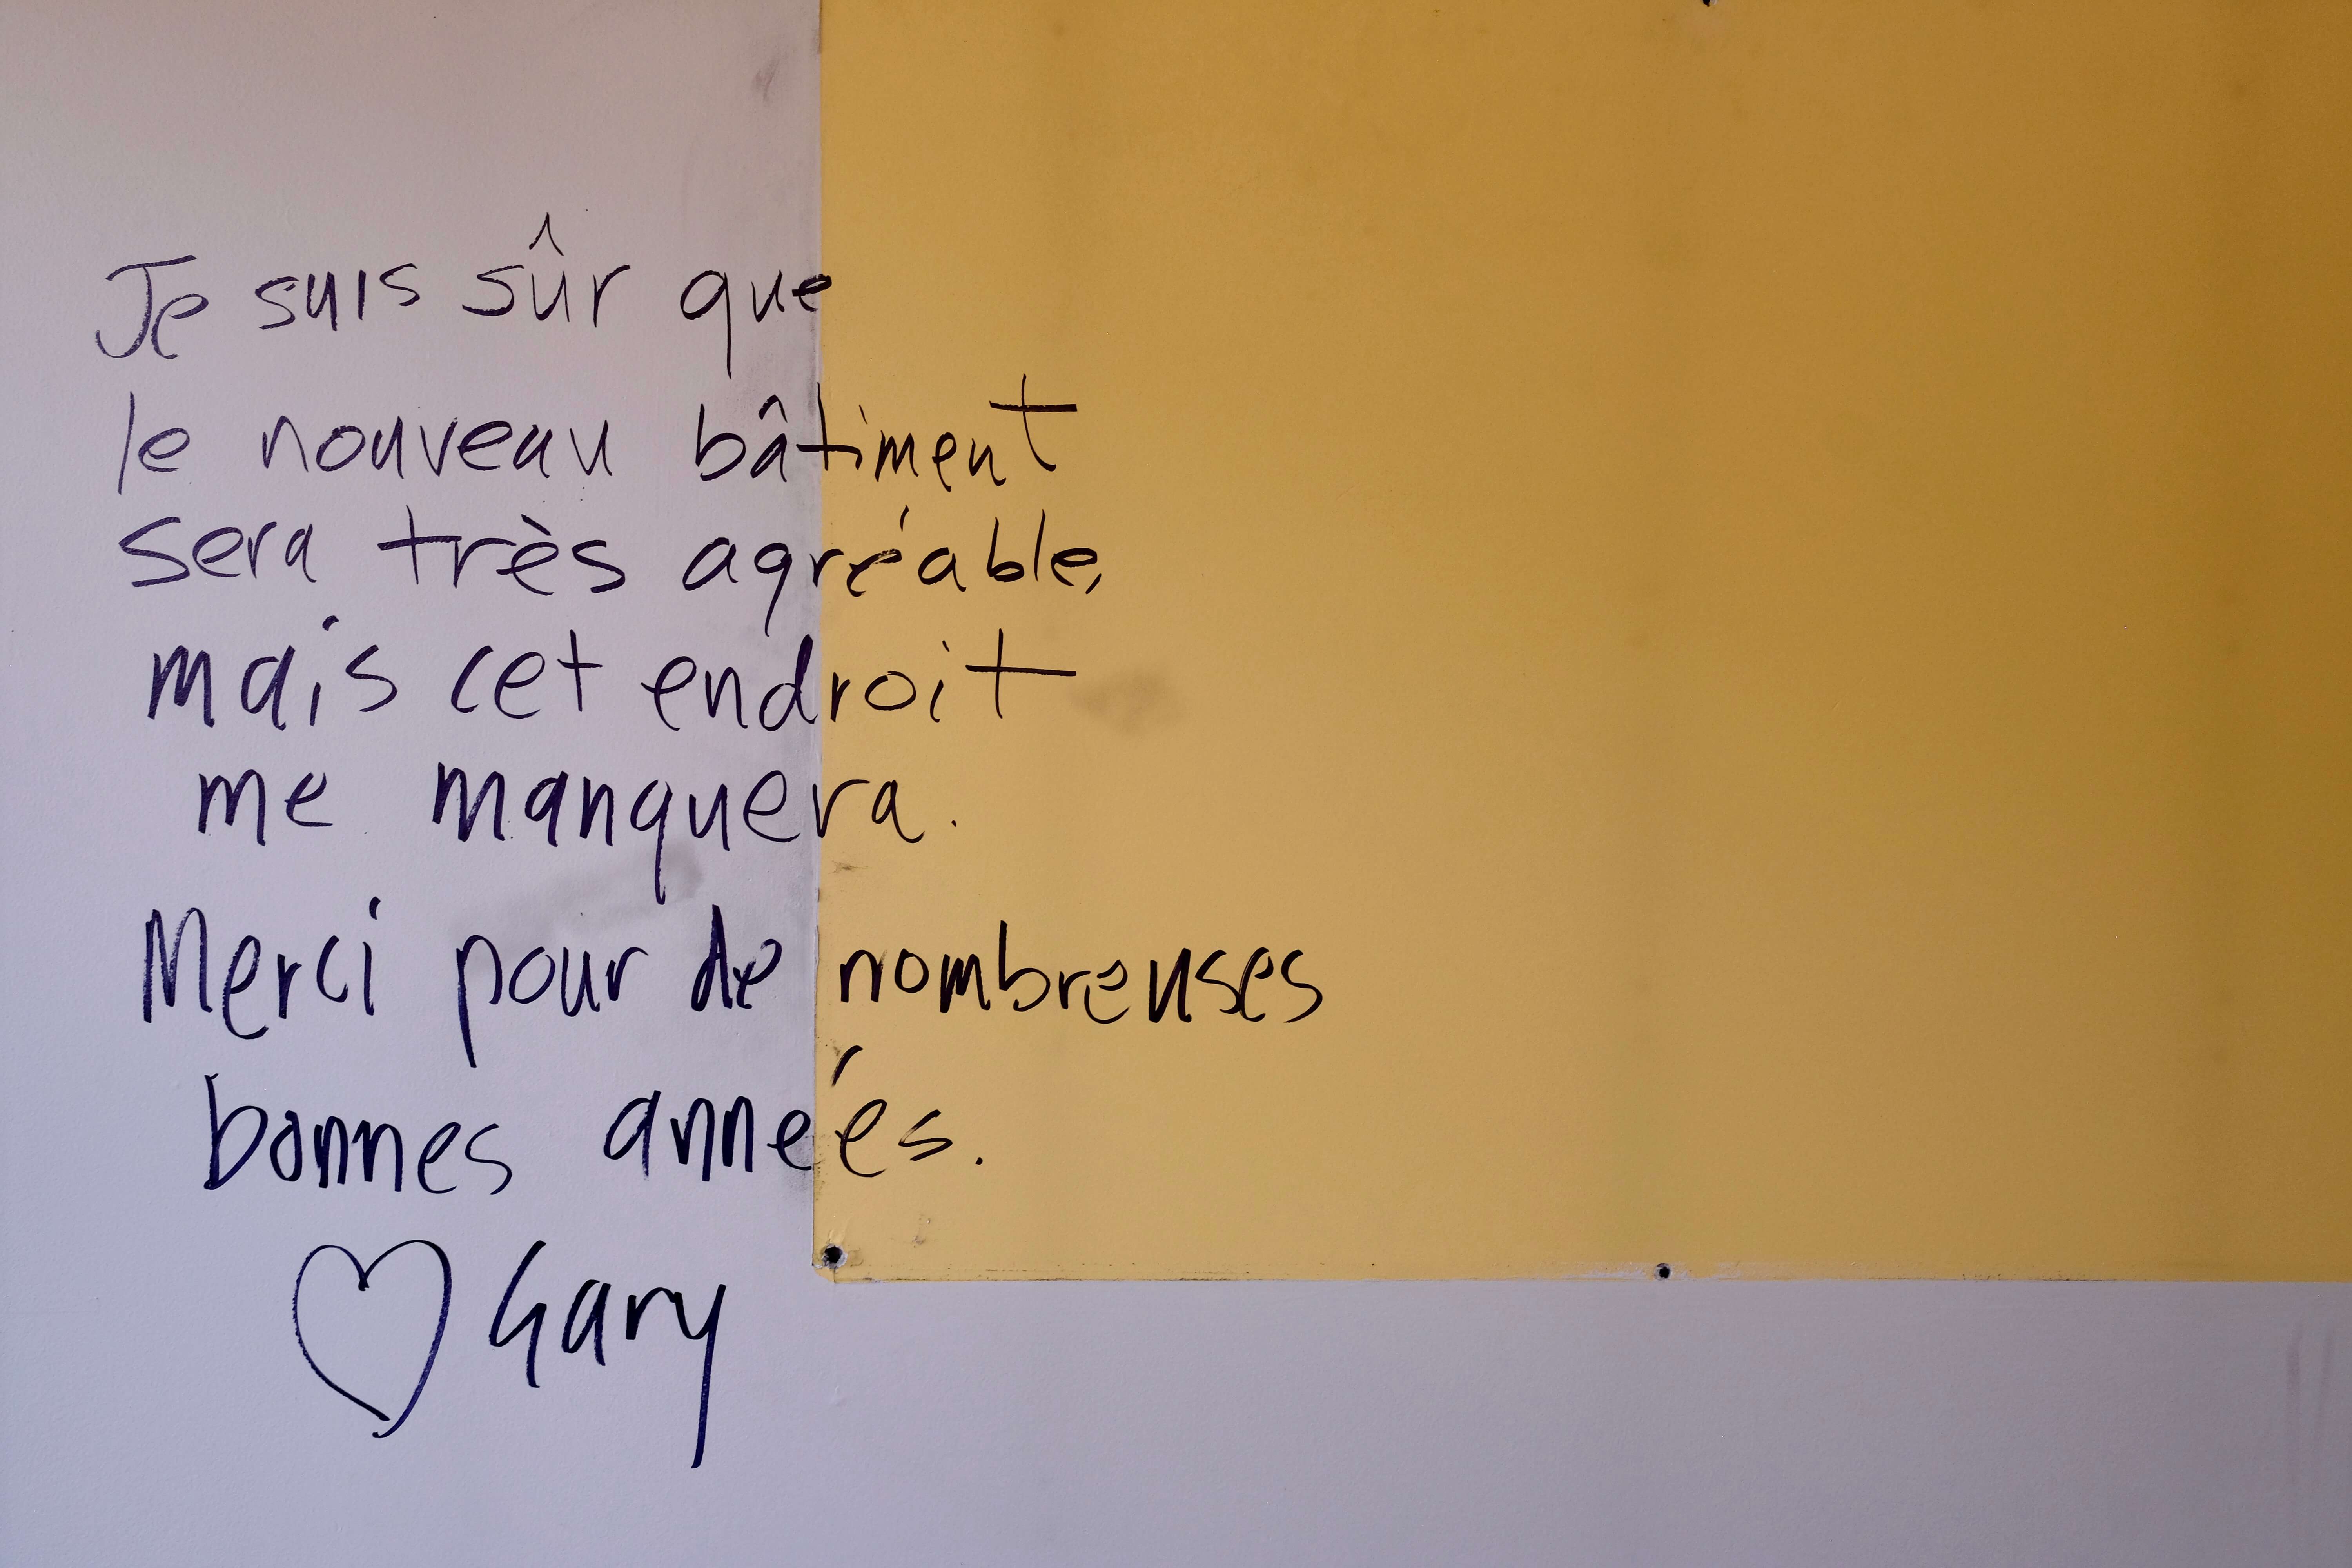 Je suis sûr que
le nouveau bâtiment
sera très agréable,
mais cet endroit
me manquera.
Merci pour de nombreuses
bonnes années.
♡ Gary